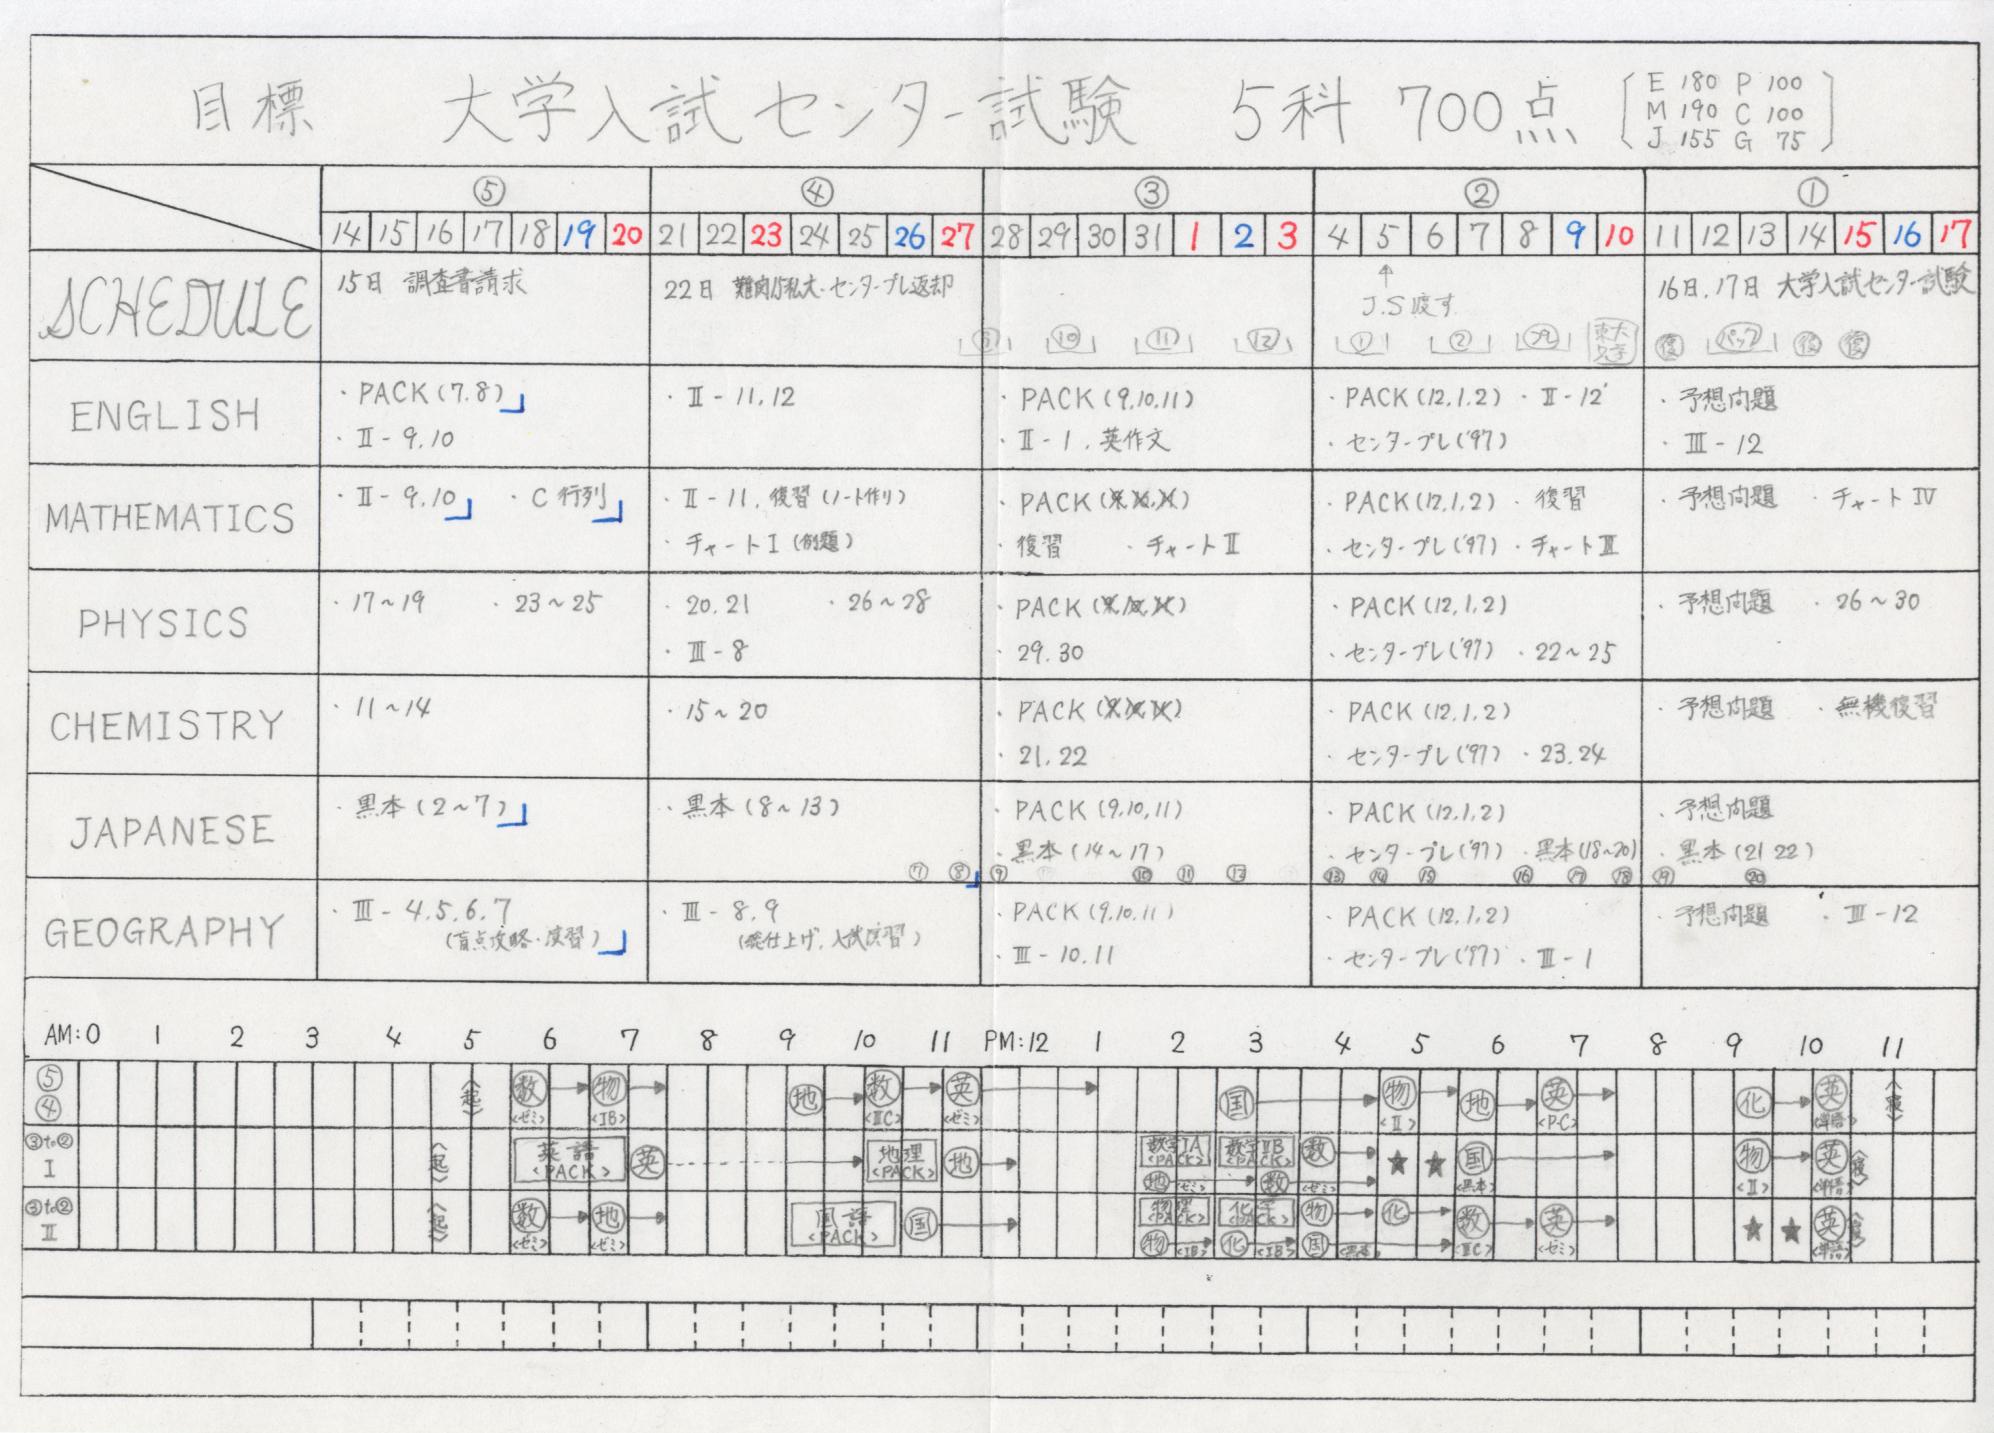 目標 大学入試センター試験 5科 700点
E 180 P 100
M 190 C 100
J 155 G 75
⑤ ④ ③ ② ①
14 15 16 17 18 19 20 21 22 23 24 25 26 27 28 29 30 31 1 2 3 4 5 6 7 8 9 10 11 12 13 14 15 16 17
SCHEDULE
15日 調査書請求
22日 難関私大・センタープレ返却
⑩ ⑪ ⑫
↑
J.S渡す
① ② プレ
16日,17日 大学入試センター試験
復 パック 復 復
ENGLISH
・PACK(7.8)
・Ⅱ-9,10
・Ⅱ-11,12
・PACK(9,10,11)
・Ⅱ-1, 英作文
・PACK(12,1,2) ・Ⅱ-12'
・センタープレ('97)
・予想問題
・Ⅲ-12
MATHEMATICS
・Ⅱ-9,10 ・C 行列
・Ⅱ-11, 復習(ノート作り)
・チャートⅠ(例題)
・PACK
・復習 ・チャートⅡ
・PACK(12,1,2) ・復習
・センタープレ('97) ・チャートⅢ
・予想問題 ・チャートⅣ
PHYSICS
・17~19 ・23~25
・20,21 ・26~28
・Ⅲ-8
・PACK
・29,30
・PACK(12,1,2)
・センタープレ('97) ・22~25
・予想問題 ・26~30
CHEMISTRY
・11~14
・15~20
・PACK
・21,22
・PACK(12,1,2)
・センタープレ('97) ・23,24
・予想問題 ・無機復習
JAPANESE
・黒本(2~7)
・黒本(8~13)
⑦ ⑧
・PACK(9,10,11)
・黒本(14~17)
⑨ ⑩ ⑪ ⑫
・PACK(12,1,2)
・センタープレ('97) ・黒本(18~20)
⑬ ⑭ ⑮ ⑯ ⑰ ⑱
・予想問題
・黒本(21 22)
⑲ ⑳
GEOGRAPHY
・Ⅲ-4,5,6,7
(盲点攻略・演習)
・Ⅲ-8,9
(総仕上げ, 入試演習)
・PACK(9,10,11)
・Ⅲ-10,11
・PACK(12,1,2)
・センタープレ('97) ・Ⅲ-1
・予想問題 ・Ⅲ-12
AM:0 1 2 3 4 5 6 7 8 9 10 11 PM:12 1 2 3 4 5 6 7 8 9 10 11
⑤
④
<起> 数 → 物 → 地 → 数 → 英 → 国 → 物 → 地 → 英 → 化 → 英 <寝>
<ゼミ> <ⅠB> <ⅢC> <ゼミ> <Ⅱ> <P-C> <単語>
③to②
Ⅰ
<起> 英語 <PACK> 英 → 地理 <PACK> 地 → 数学ⅠA <PACK> 数学ⅡB <PACK> 数 → ★ ★ 国 → 物 → 英 <寝>
地 <ゼミ> → 数 <ゼミ> → <黒本> <Ⅱ> <単語>
③to②
Ⅱ
<起> 数 → 地 → 国語 <PACK> 国 → 物理 <PACK> 化学 <PACK> 物 → 化 → 数 → 英 → ★ ★ 英 <寝>
<ゼミ> <ゼミ> 物 <ⅠB> 化 <ⅠB> 国 <黒本> → <ⅢC> <ゼミ> <単語>